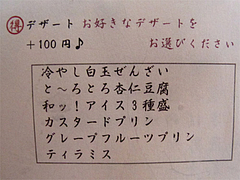 得 デザート お好きなデザートを
+100円♪ お選びください
冷やし白玉ぜんざい
と～ろとろ杏仁豆腐
和ッ!アイス3種盛
カスタードプリン
グレープフルーツプリン
ティラミス